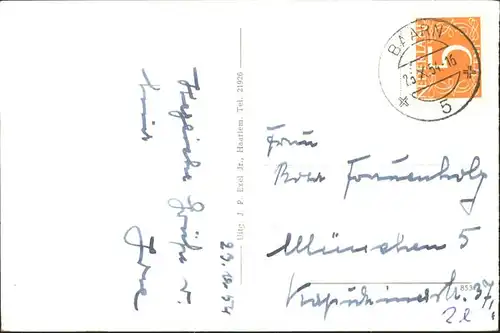 Herzliche Grüße v.
29.10.54
Uitg. J. P. Exel Jr., Haarlem. Tel. 21926
BAARN
25.X.54-16
5
NEDERLAND
5
Frau
Rosa Frauenholz
München 5
Kapuzinerstr. 37,
2.l